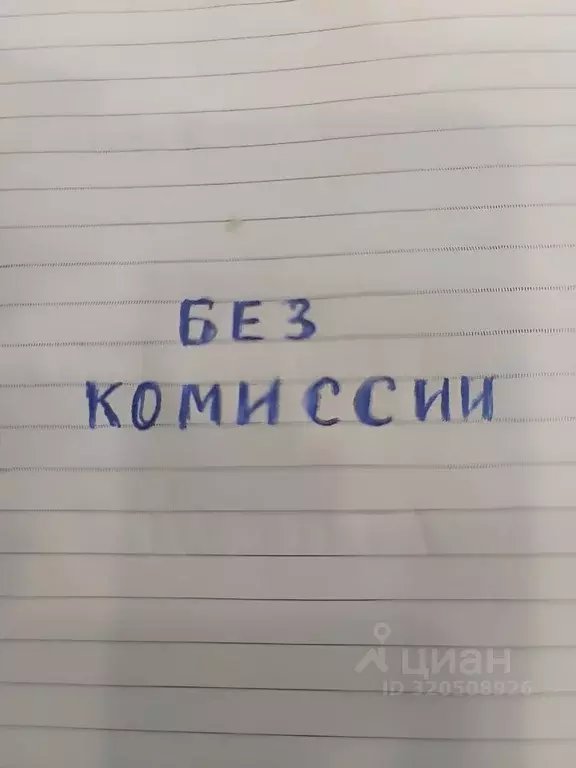 БЕЗ
КОМИССИИ
циан
ID 320508926